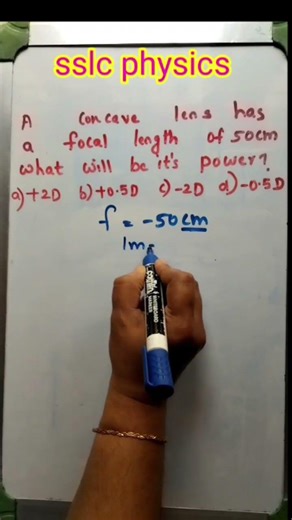 sslc physics
A concave lens has
a focal length of 50cm
what will be it's power?
a)+2D b)+0.5D c)-2D d)-0.5D
f = -50cm
1m=